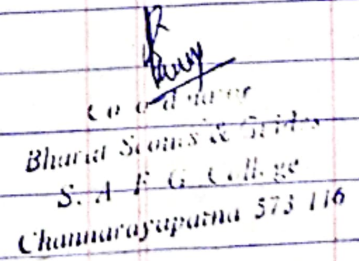 Co-ordinator
Bharat Scouts & Guides
S. A. F. G. College
Channarayapatna 573 116